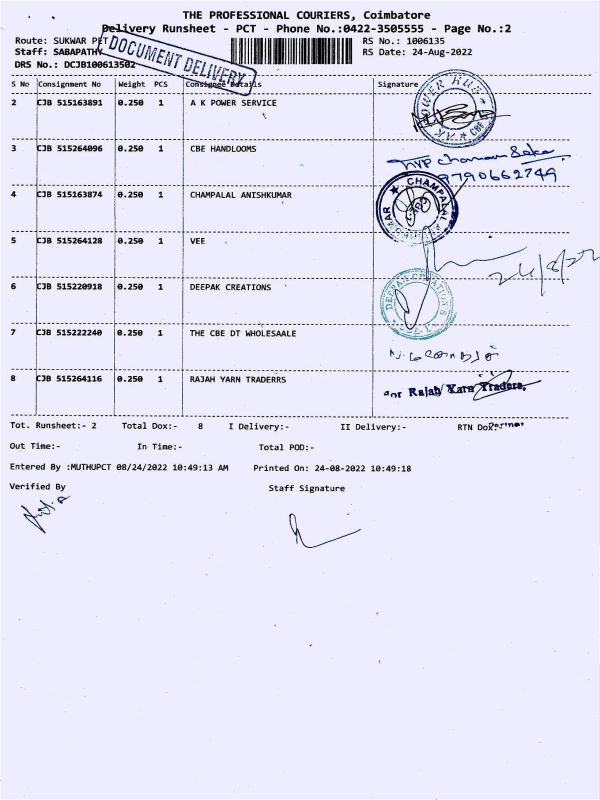 THE PROFESSIONAL COURIERS, Coimbatore
Delivery Runsheet - PCT - Phone No.:0422-3505555 - Page No.:2
Route: SUKWAR PET
RS No.: 1006135
Staff: SABAPATHY
RS Date: 24-Aug-2022
DRS No.: DCJB100613502
DOCUMENT DELIVERY
S No Consignment No Weight PCS Consignee Details Signature
2 CJB 515163891 0.250 1 A K POWER SERVICE
POWER HUB * AK * CBE
3 CJB 515264096 0.250 1 CBE HANDLOOMS
9790662749
4 CJB 515163874 0.250 1 CHAMPALAL ANISHKUMAR
CHAMPALAL
5 CJB 515264128 0.250 1 VEE
24/8/22
6 CJB 515220918 0.250 1 DEEPAK CREATIONS
DEEPAK CREATIONS
7 CJB 515222240 0.250 1 THE CBE DT WHOLESAALE
8 CJB 515264116 0.250 1 RAJAH YARN TRADERRS
For Rajah Yarn Traders,
Partner
Tot. Runsheet:- 2 Total Dox:- 8 I Delivery:- II Delivery:- RTN Dox:-
Out Time:- In Time:- Total POD:-
Entered By :MUTHUPCT 08/24/2022 10:49:13 AM Printed On: 24-08-2022 10:49:18
Verified By Staff Signature